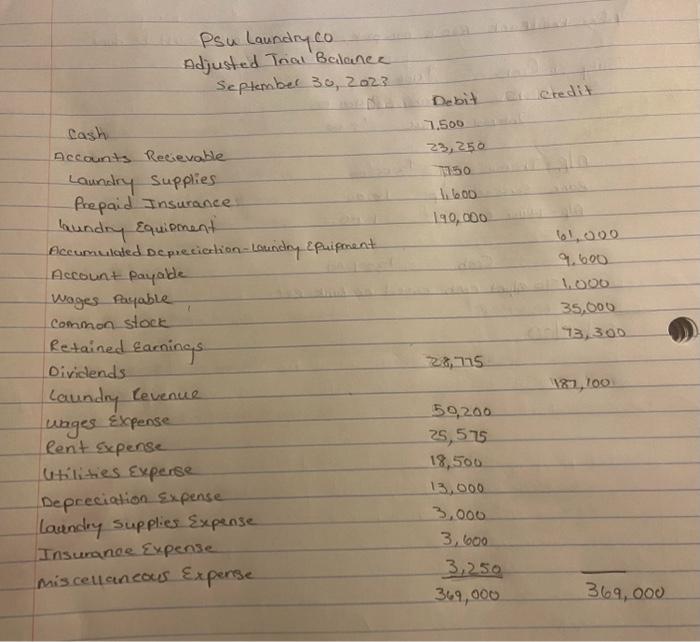 Psu Laundry co
Adjusted Trial Balance
September 30, 2023
Debit Credit
Cash 7,500
Accounts Recievable 23,250
Laundry Supplies 750
Prepaid Insurance 1,600
Laundry Equipment 190,000
Accumulated Depreciation-Laundry Equipment 61,000
Account Payable 9,600
Wages Payable 1,000
Common stock 35,000
Retained Earnings 73,300
Dividends 28,775
Laundry Revenue 187,100
Wages Expense 50,200
Rent Expense 25,575
Utilities Expense 18,500
Depreciation Expense 13,000
Laundry Supplies Expense 3,000
Insurance Expense 3,600
Miscellaneous Expense 3,250
369,000 369,000